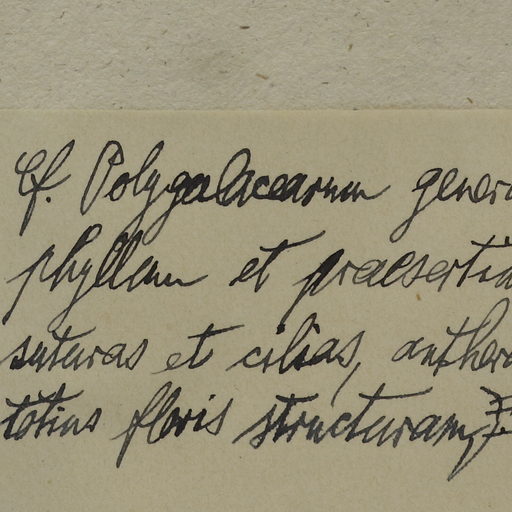 Cf. Polygalacearum genera
phyllum et praesertim
suturas et cilias, anthera
totius floris structuram,